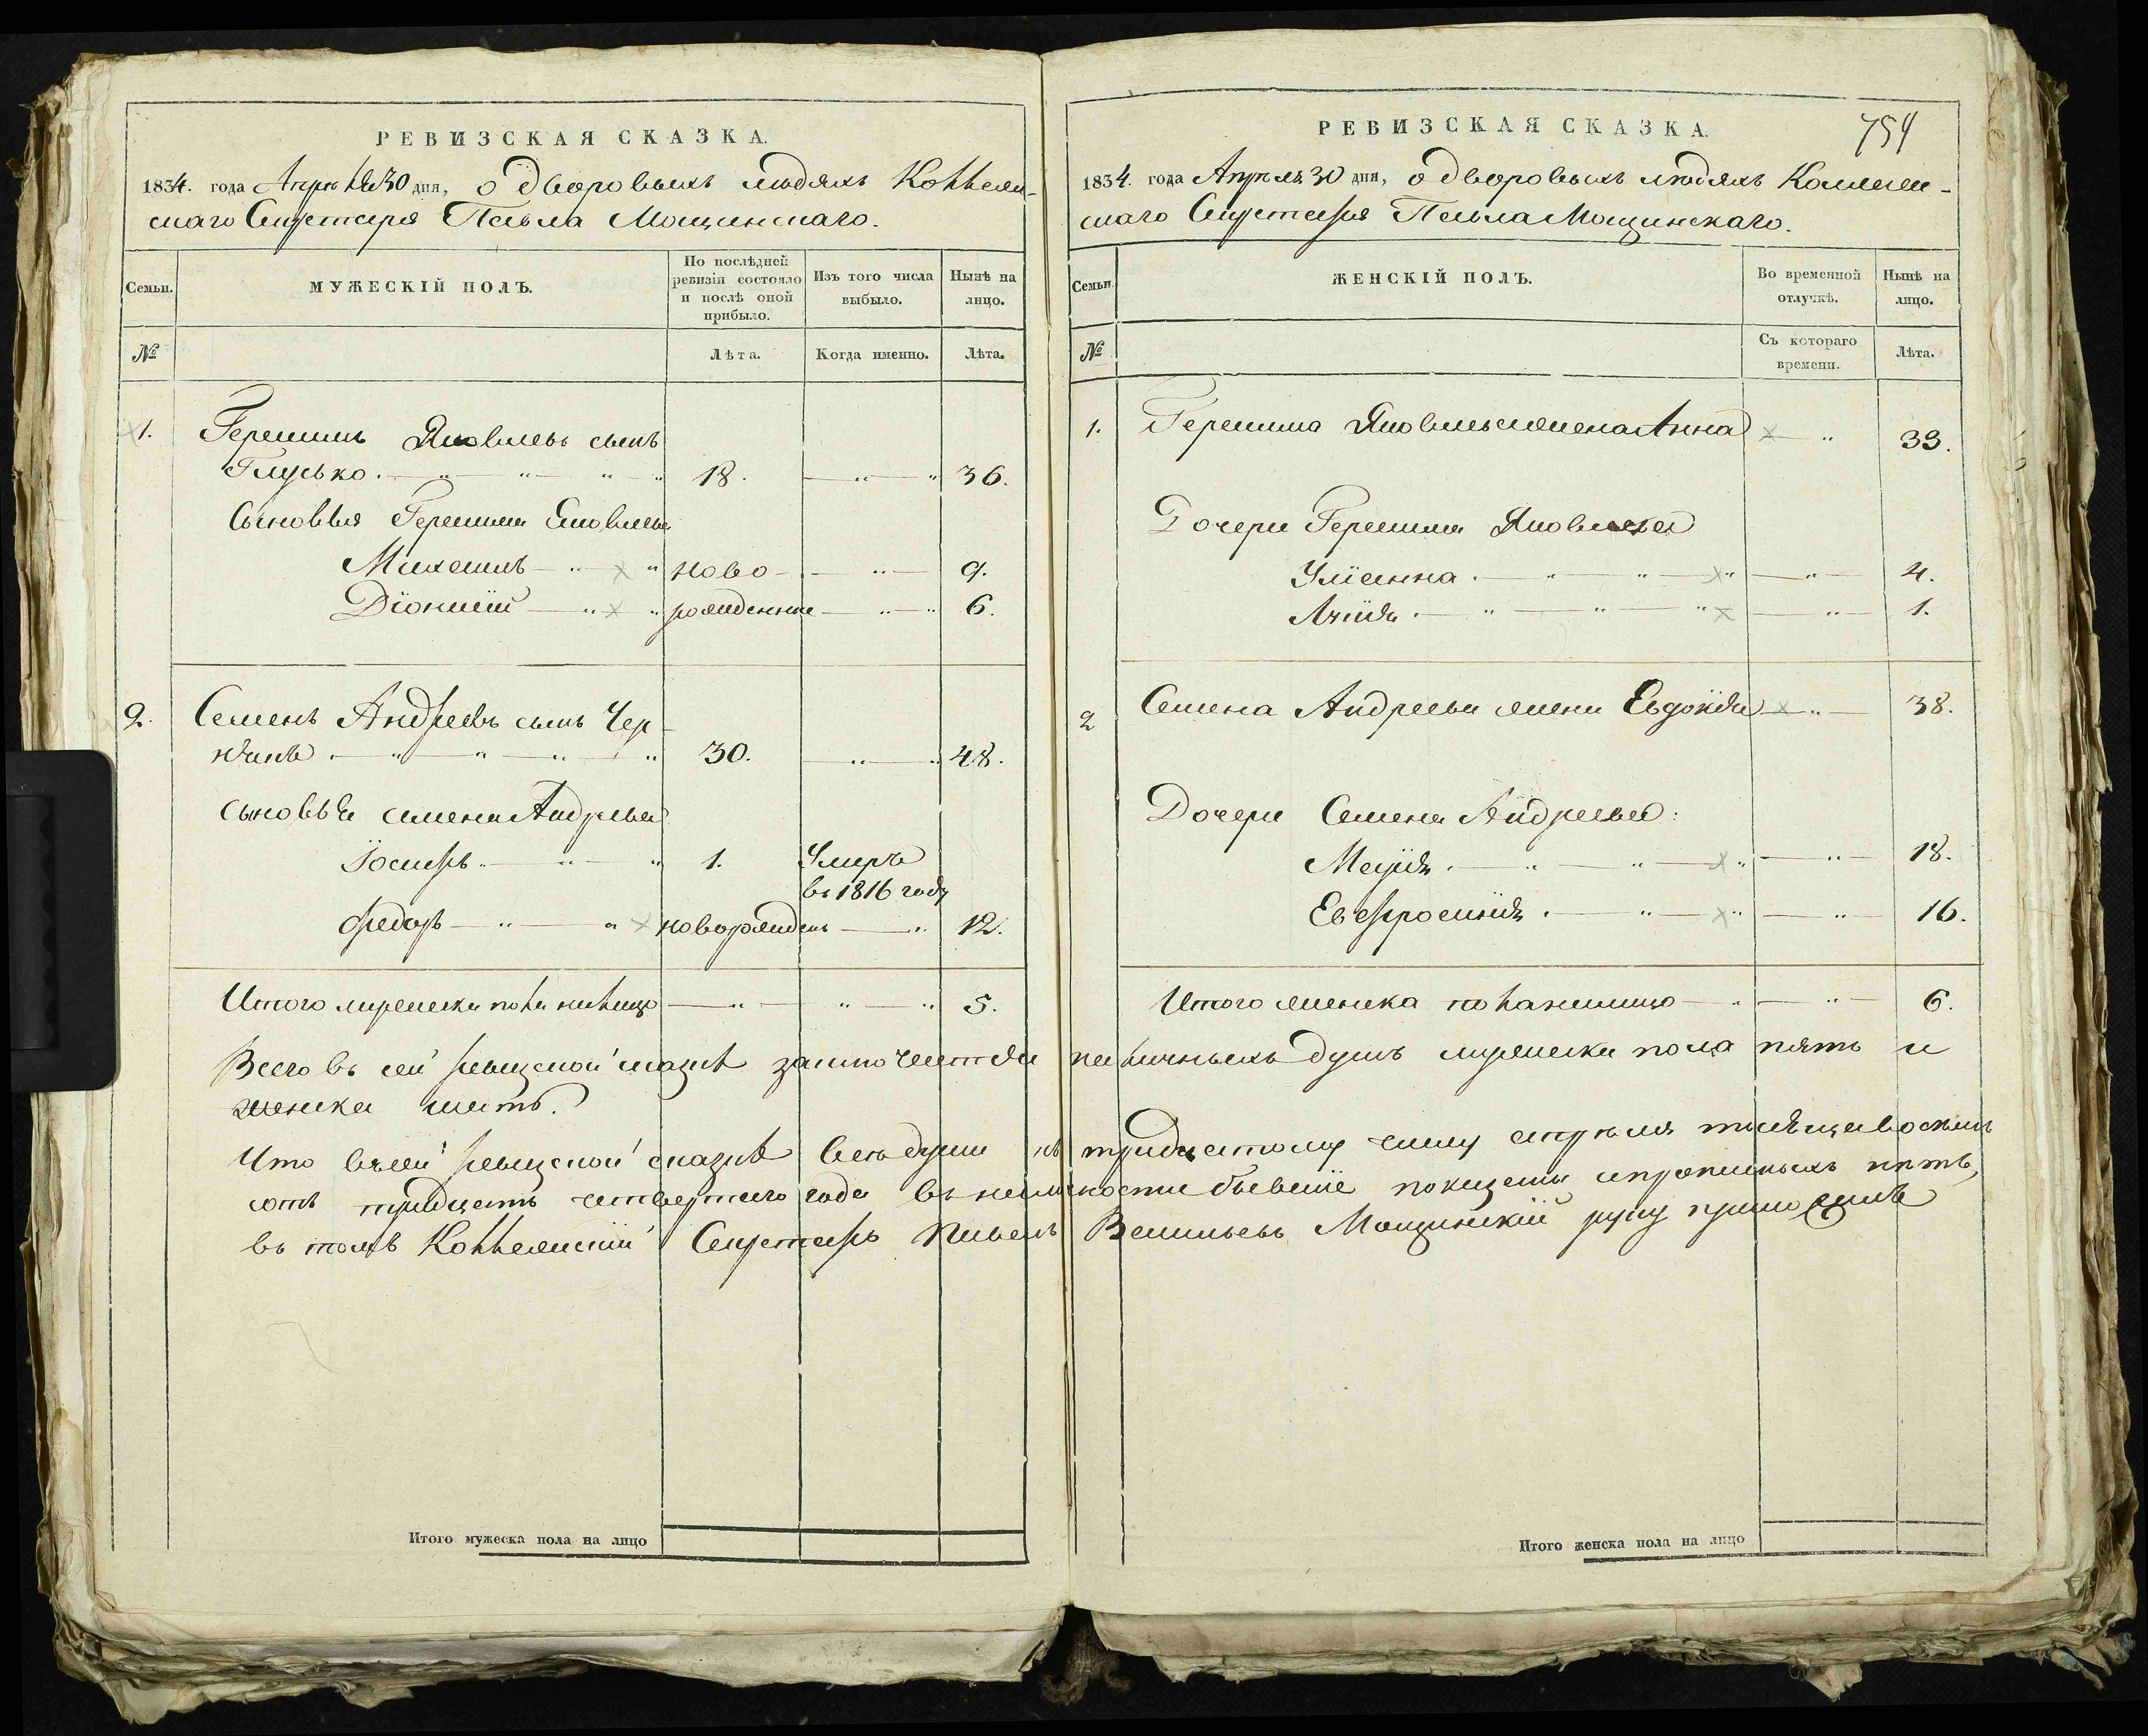 РЕВИЗСКАЯ СКАЗКА.
1834. года Апреля 30 дня, о дворовыхъ людяхъ Коллеж-
скаго Секретаря Павла Мощинскаго.
Семьи.
МУЖЕСКІЙ ПОЛЪ.
По послѣдней ревизіи состояло и послѣ оной прибыло.
Изъ того числа выбыло.
Нынѣ на лицо.
№
Лѣта.
Когда именно.
Лѣта.
1. Герасимъ Яковлевъ сынъ
Глусько. 18. 36.
Сыновья Герасима Яковлева
Михаилъ ново- 9.
Діонисій рожденные 6.
2. Семенъ Андреевъ сынъ Чер-
30. 48.
сыновья Семена Андреева
Іосифъ 1. Умеръ
въ 1816 году
Федоръ новорожденъ 12.
Итого мужеска пола налицо 5.
РЕВИЗСКАЯ СКАЗКА.
754
1834. года Апреля 30 дня, о дворовыхъ людяхъ Коллеж-
скаго Секретаря Павла Мощинскаго.
Семьи.
ЖЕНСКІЙ ПОЛЪ.
Во временной отлучкѣ.
Нынѣ на лицо.
№
Съ котораго времени.
Лѣта.
1. Герасима Яковлева жена Анна 33.
Дочери Герасима Яковлева
Уліанна 4.
1.
2 Семена Андреева жена Евдокія 38.
Дочери Семена Андреева:
Марія 18.
Евфросинія 16.
Итого женска пола налицо 6.
Всего въ сей ревизской сказкѣ заключается наличныхъ душъ мужеска пола пять и
женска шесть.
Что въ сей ревизской сказкѣ все души къ тридцатому числу апреля тысяща восемь
сотъ тридцать четвертаго года въ наличности бывшіе показаны и прописныхъ нѣтъ,
въ томъ Коллежскій Секретарь Павелъ Васильевъ Мощинскій руку приложилъ
Итого мужеска пола на лицо
Итого женска пола на лицо